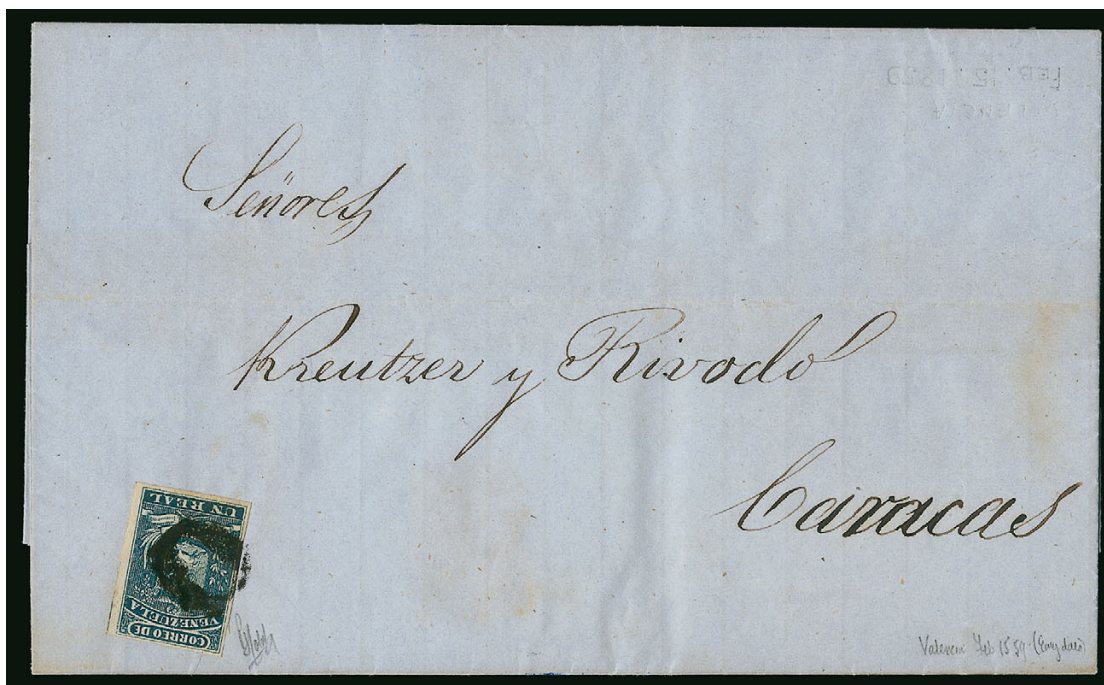 FEB. 15. 1859
VALENCIA
Señores
Kreutzer y Rivodó
Caracas
UN REAL
CORREO DE
VENEZUELA
Valencia Feb 15 59 (Early date)